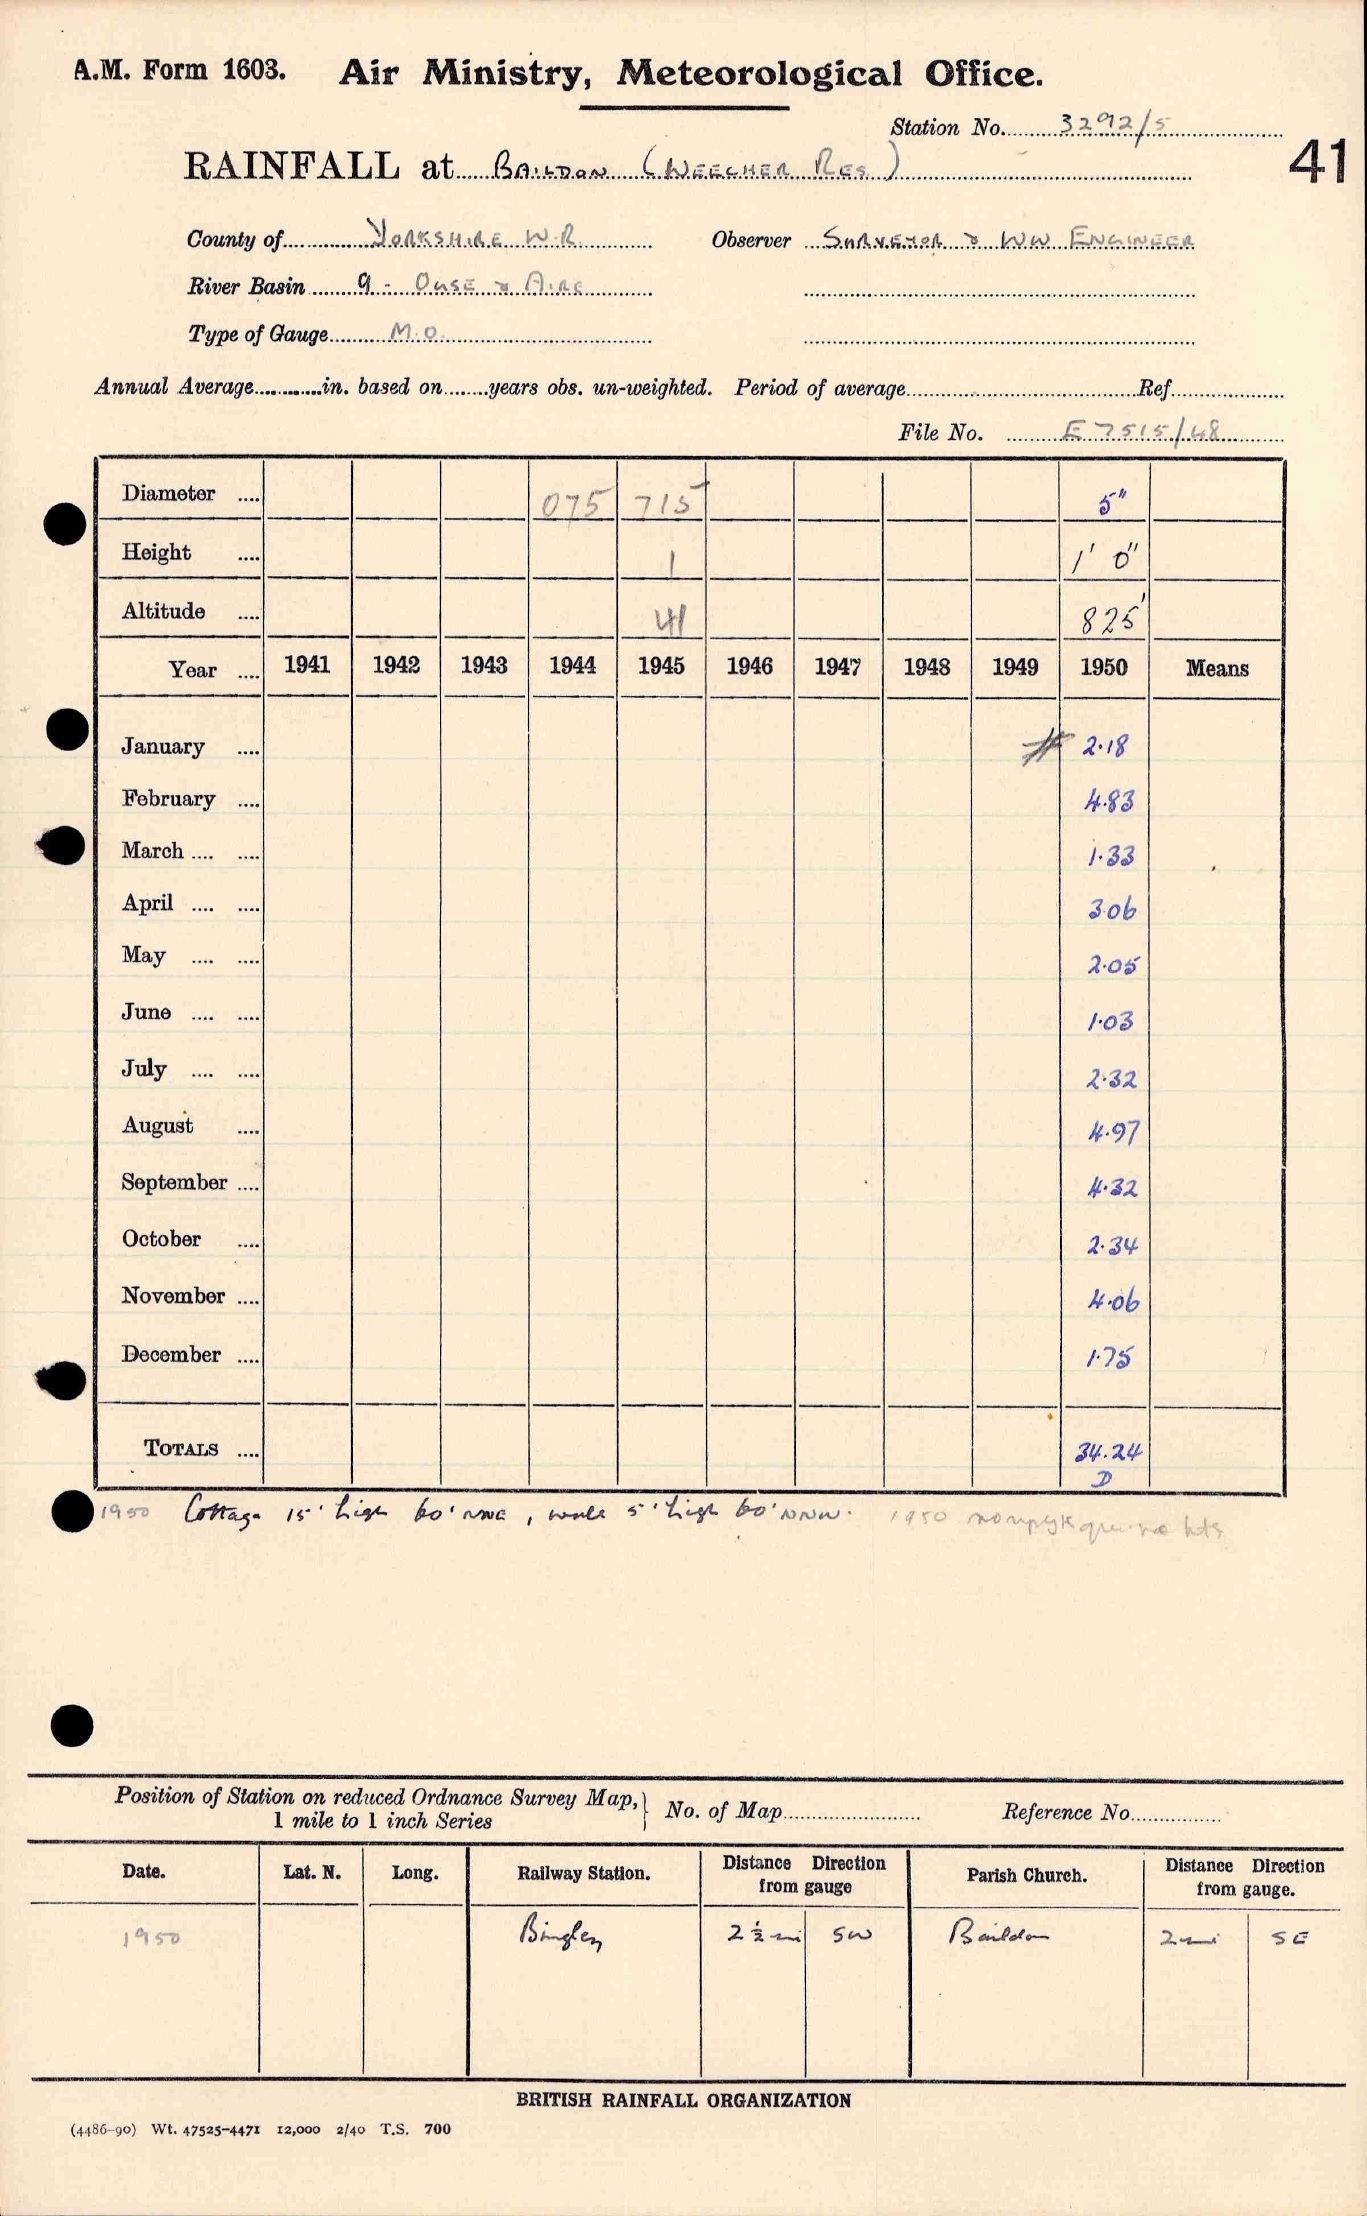 A.M. Form 1603. Air Ministry, Meteorological Office.
Station No. 3292/5
41
RAINFALL at BAILDON (WEECHER RES)
County of YORKSHIRE W.R. Observer SURVEYOR & WW ENGINEER
River Basin 9 - OUSE & AIRE
Type of Gauge M.O.
Annual Average in. based on years obs. un-weighted. Period of average Ref
File No. E 7515/48
Diameter 075 715 5"
Height 1 1' 0"
Altitude 41 825'
Year 1941 1942 1943 1944 1945 1946 1947 1948 1949 1950 Means
January # 2.18
February 4.83
March 1.33
April 3.06
May 2.05
June 1.03
July 2.32
August 4.97
September 4.32
October 2.34
November 4.06
December 1.75
TOTALS 34.24
D
1950 Cottage 15' high 60' NNE, wall 5' high 60' NNW. 1950
Position of Station on reduced Ordnance Survey Map, 1 mile to 1 inch Series } No. of Map Reference No.
Date. Lat. N. Long. Railway Station. Distance Direction from gauge Parish Church. Distance Direction from gauge.
1950 Bingley 2½ mi SW Baildon 2 mi SE
BRITISH RAINFALL ORGANIZATION
(4486-90) Wt. 47525-4471 12,000 2/40 T.S. 700